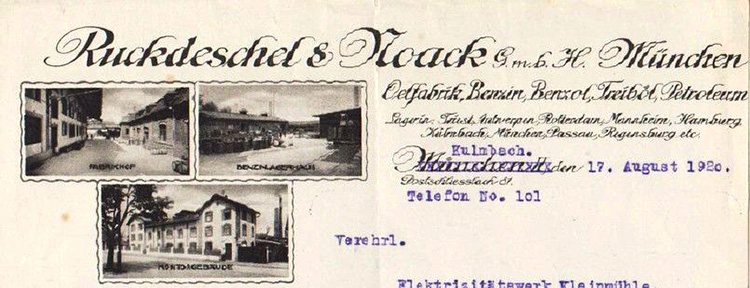 Ruckdeschel & Noack G.m.b.H. München
Oelfabrik, Benzin, Benzol, Treiböl, Petroleum
Lager in: Triest, Antwerpen, Rotterdam, Mannheim, Hamburg,
Kulmbach, München, Passau, Regensburg etc.
Kulmbach.
München, den 17. August 1920.
Postschliessfach
Telefon No. 101
FABRIKHOF
BENZINLAGER
KONTORGEBÄUDE
Verehrl.
Elektrizitätswerk Kleinmühle